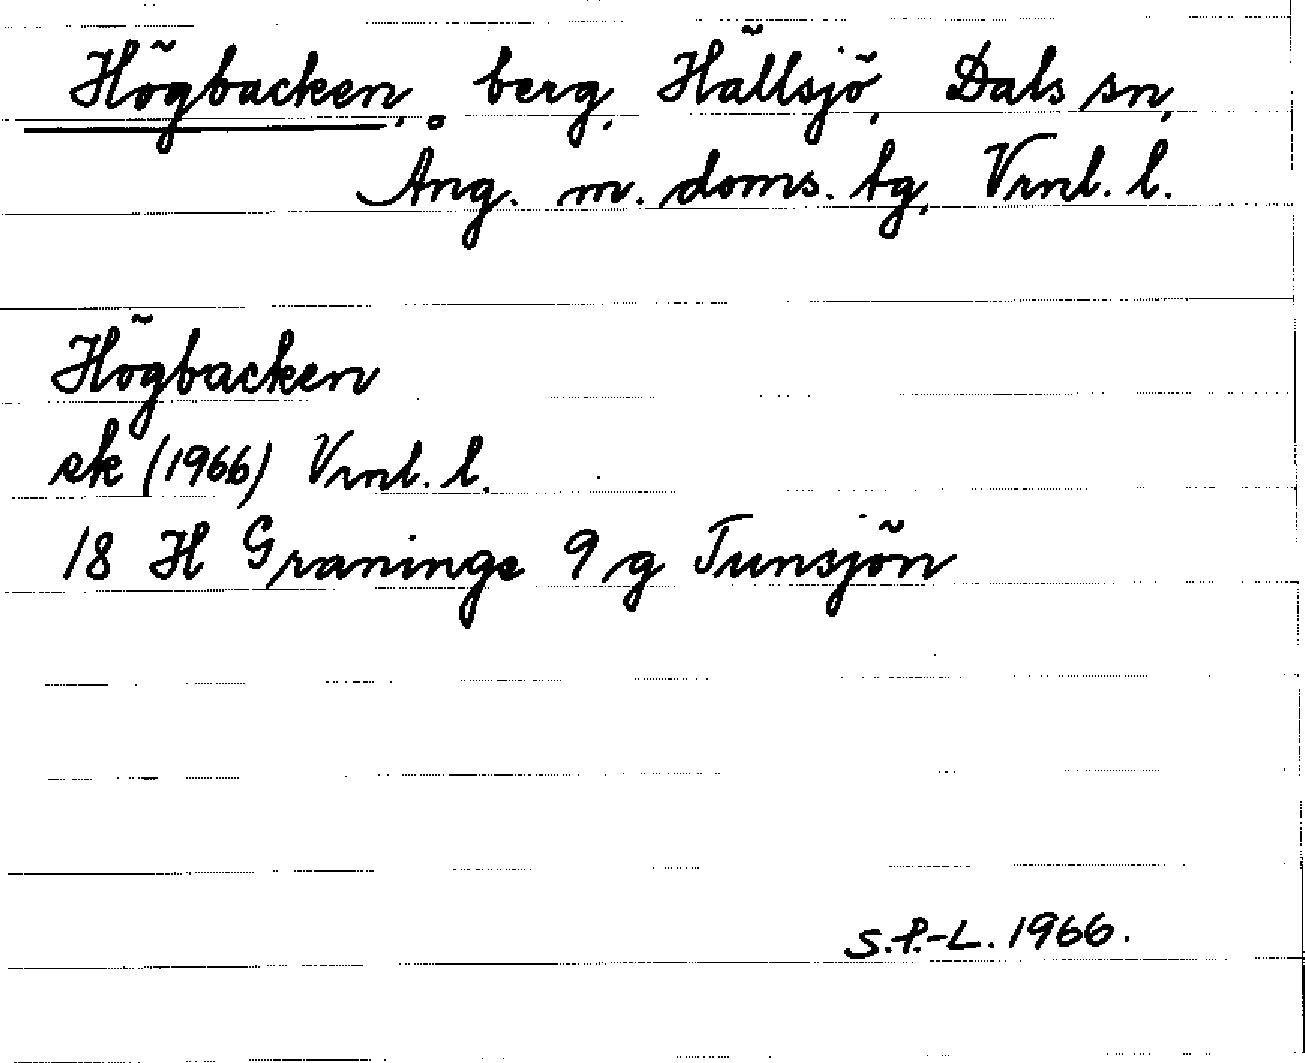 Högbacken, berg, Hällsjö, Dals sn,
Ång. m. doms. tg, Vrnl. l.
Högbacken
ek (1966) Vrnl. l.
18 H Graninge 9 g Tunsjön
S.P.-L. 1966.